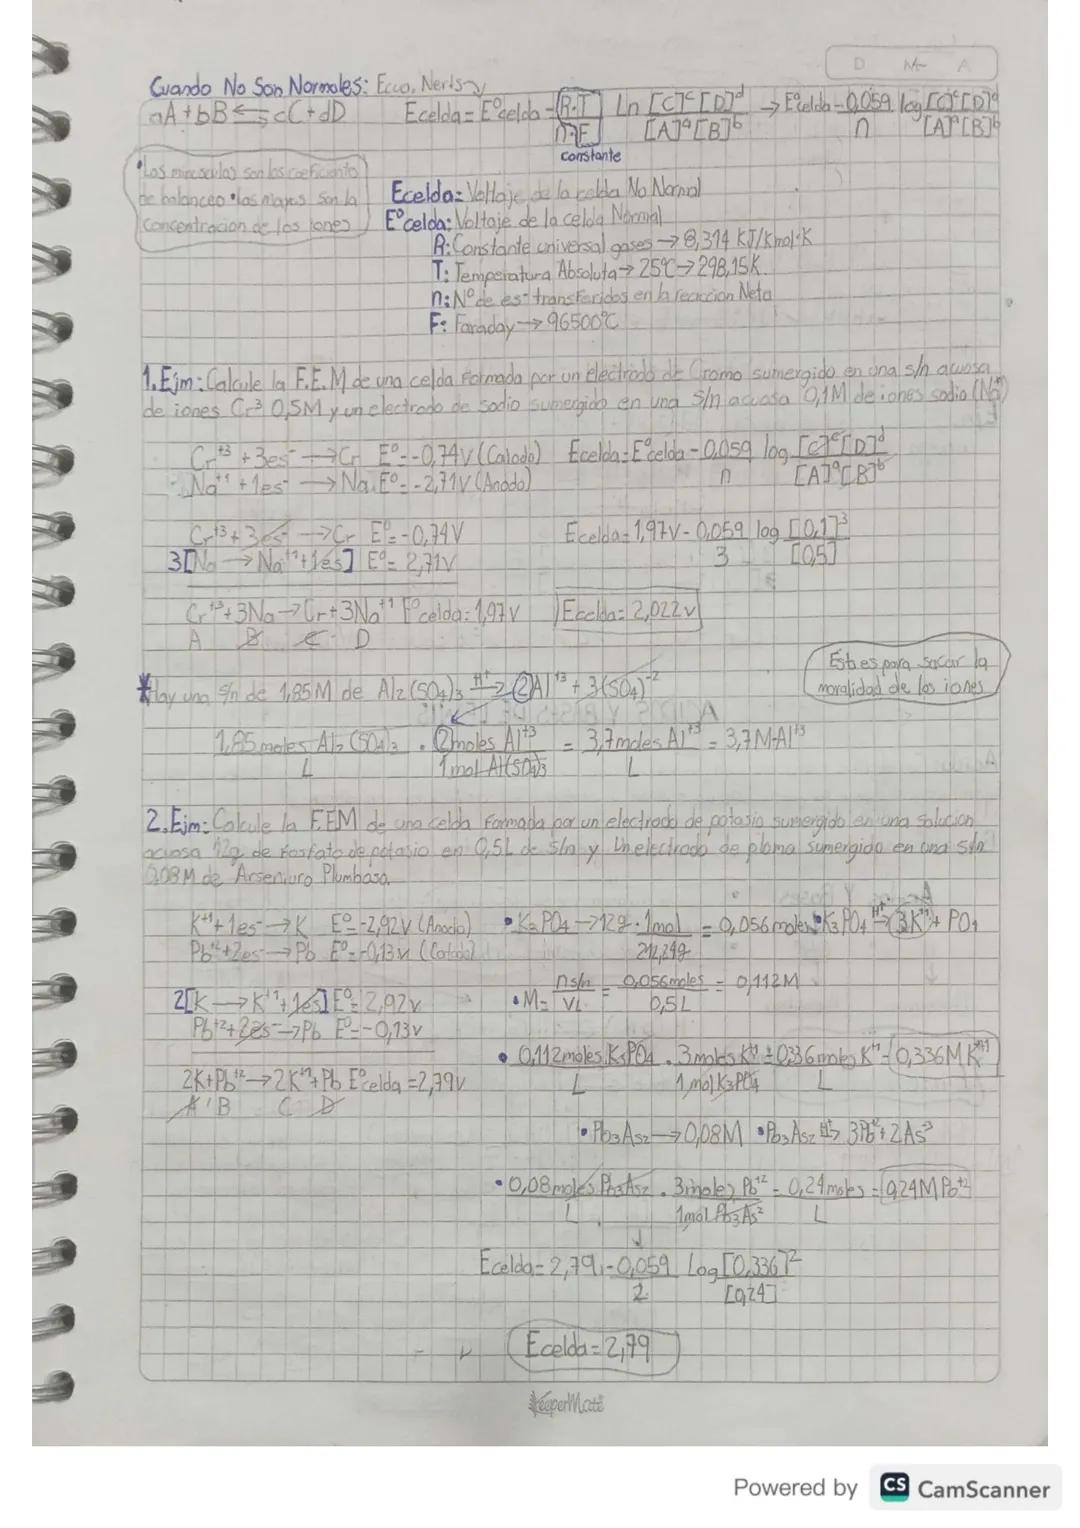 D M A
Cuando No Son Normales: Ecua. Nerts y
aA + bB ⇆ cC + dD Ecelda = E°celda - R·T/n·F Ln [C]^c [D]^d/[A]^a [B]^b → E°celda - 0,059/n log [C]^c [D]^d/[A]^a [B]^b
constante
•Las minusculas son los coeficiento
de balanceo •las mayus son la
concentracion de los iones
Ecelda: Voltaje de la celda No Normal
E°celda: Voltaje de la celda Normal
R: Constante universal gases → 8,314 KJ/Kmol·K
T: Temperatura Absoluta → 25°C → 298,15K
n: N° de es⁻ transferidos en la reaccion Neta
F: Faraday → 96500°C
1. Ejm: Calcule la F.E.M de una celda formada por un electrodo de Cromo sumergido en una s/n acuosa
de iones Cr³ 0,5M y un electrodo de sodio sumergido en una s/n acuosa 0,1M de iones sodio (Na⁺¹)
Cr⁺³ + 3es⁻ → Cr E°= -0,74v (Catodo) Ecelda = E°celda - 0,059/n log [C]^c [D]^d/[A]^a [B]^b
Na⁺¹ + 1es⁻ → Na E°= -2,71V (Anodo)
Cr⁺³ + 3es⁻ → Cr E°= -0,74V Ecelda = 1,97V - 0,059/3 log [0,1]³/[0,5]
3[Na → Na⁺¹ + 1es] E°= 2,71V
Cr⁺³ + 3Na → Cr + 3Na⁺¹ E°celda = 1,97v Ecelda = 2,022v
A B C D
Esto es para sacar la
moralidad de los iones
*Hay una s/n de 1,85M de Al₂(SO₄)₃ H⁺→ 2Al⁺³ + 3(SO₄)⁻²
1,85 moles Al₂(SO₄)₃/L · 2moles Al⁺³/1mol Al(SO₄)₃ = 3,7moles Al⁺³/L = 3,7M·Al⁺³
2. Ejm: Calcule la FEM de una celda formada por un electrodo de potasio sumergido en una solucion
acuosa 12g de fosfato de potasio en 0,5L de s/n y Un electrodo de plomo sumergido en una s/n
0,08M de Arseniuro Plumboso.
K⁺¹ + 1es⁻ → K E°= -2,92V (Anodo) • K₃PO₄ → 12g · 1mol/212,24g = 0,056moles • K₃PO₄ H⁺→ 3K⁺¹ + PO₄
Pb⁺² + 2es⁻ → Pb E°= -0,13v (Catodo)
2[K → K⁺¹ + 1es] E°= 2,92v • M = ns/n/VL = 0,056moles/0,5L = 0,112M
Pb⁺² + 2es⁻ → Pb E°= -0,13v
2K + Pb⁺² → 2K⁺¹ + Pb E°celda = 2,79v
A B C D
• 0,112moles K₃PO₄/L · 3moles K⁺¹/1molK₃PO₄ = 0,336moles K⁺¹/L = 0,336M K⁺¹
• Pb₃As₂ → 0,08M • Pb₃As₂ H⁺→ 3Pb⁺² + 2As³
• 0,08moles Pb₃As₂/L · 3moles Pb⁺²/1mol Pb₃As² = 0,24moles/L = 0,24M Pb⁺²
Ecelda = 2,79v - 0,059/2 Log [0,336]²/[0,24]
Ecelda = 2,79
KeeperMate
Powered by CS CamScanner